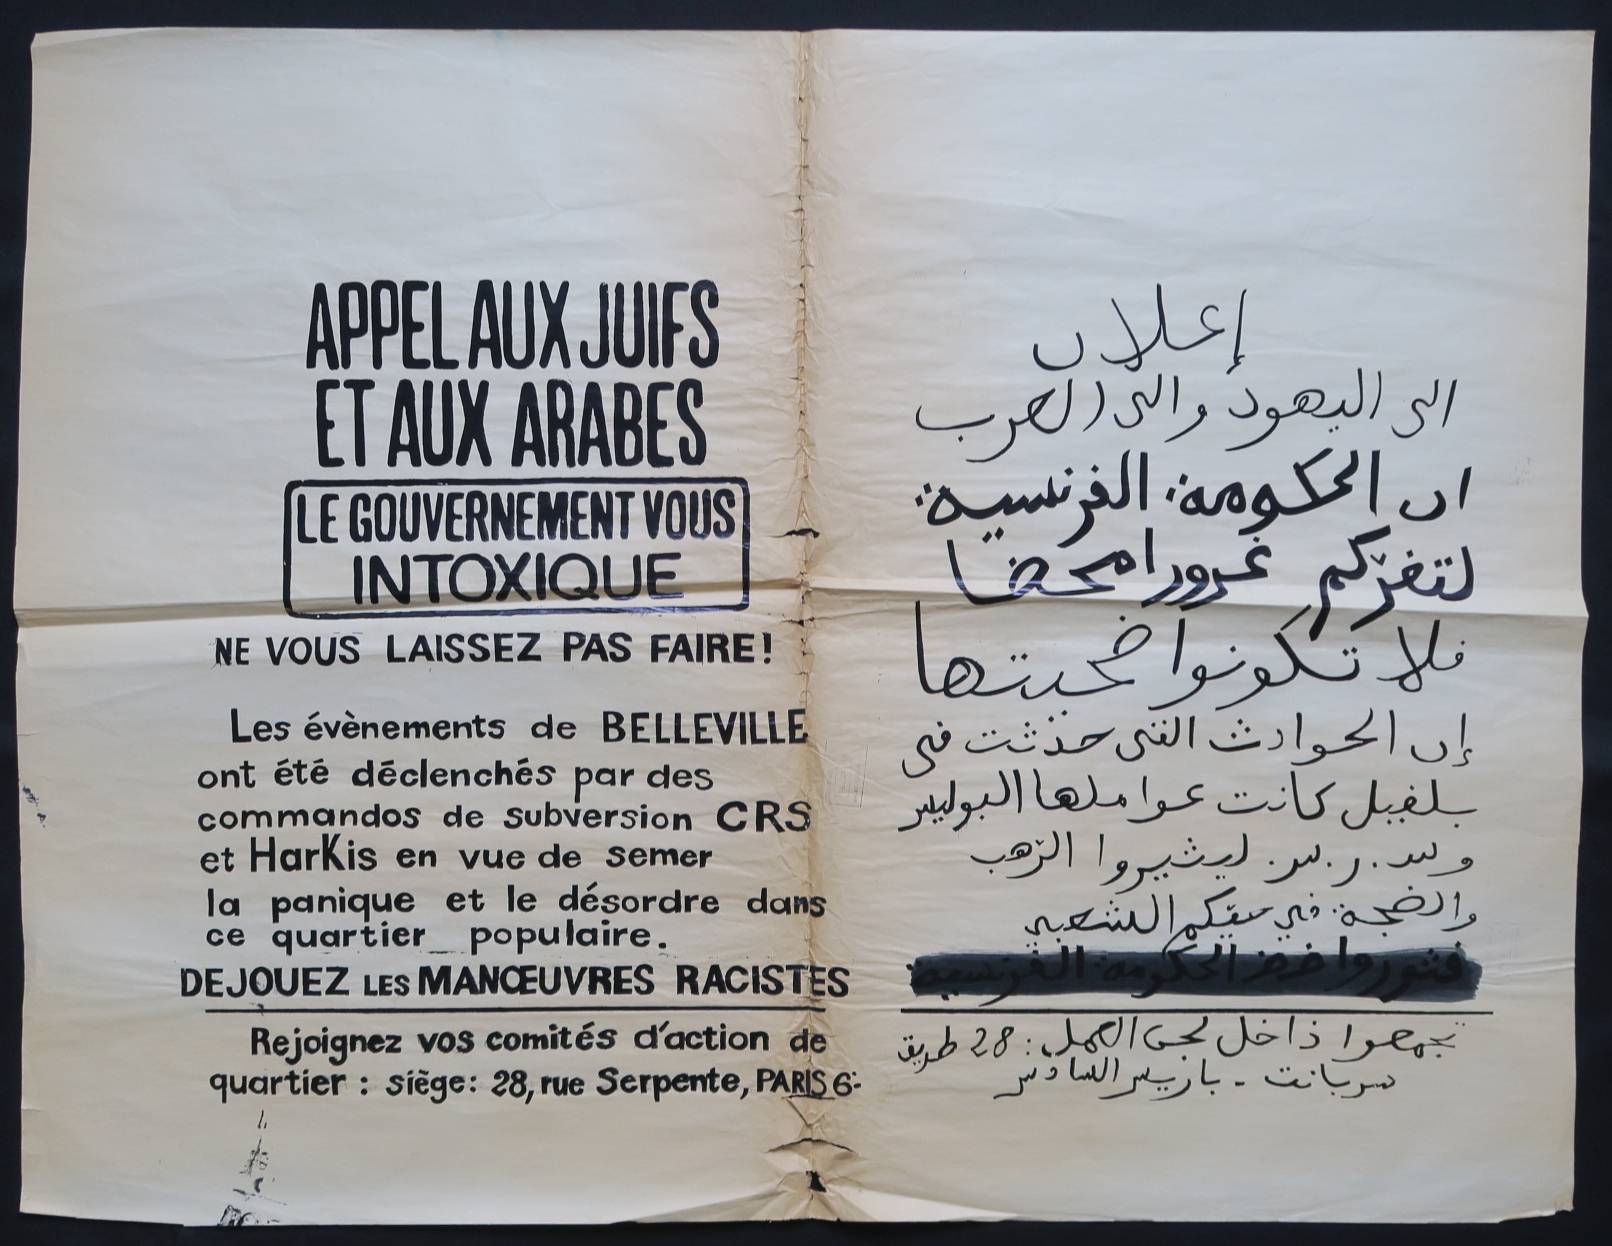 APPEL AUX JUIFS
ET AUX ARABES
LE GOUVERNEMENT VOUS
INTOXIQUE
NE VOUS LAISSEZ PAS FAIRE!
Les évènements de BELLEVILLE
ont été déclenchés par des
commandos de subversion CRS
et HarKis en vue de semer
la panique et le désordre dans
ce quartier populaire.
DEJOUEZ LES MANŒUVRES RACISTES
Rejoignez vos comités d'action de
quartier : siège: 28, rue Serpente, PARIS 6-
إعلان
الى اليهود والى العرب
ان الحكومة الفرنسية
لتغرّكم غرورا محضا
فلا تكونوا ضحيتها
إن الحوادث التى حدثت فى
بلفيل كانت عواملها البوليس
وس.ر.س. ليثيروا الرّهب
والضجة في حيّكم الشعبي
فثوروا ضد الحكومة الفرنسية
تجمعوا داخل لجن العمل: 28 طريق
سربانت - باريس السادس